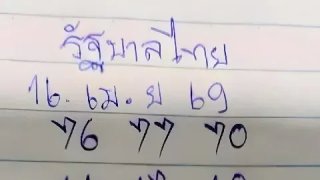 รัฐบาลไทย
16. เม.ย 69
76 77 70